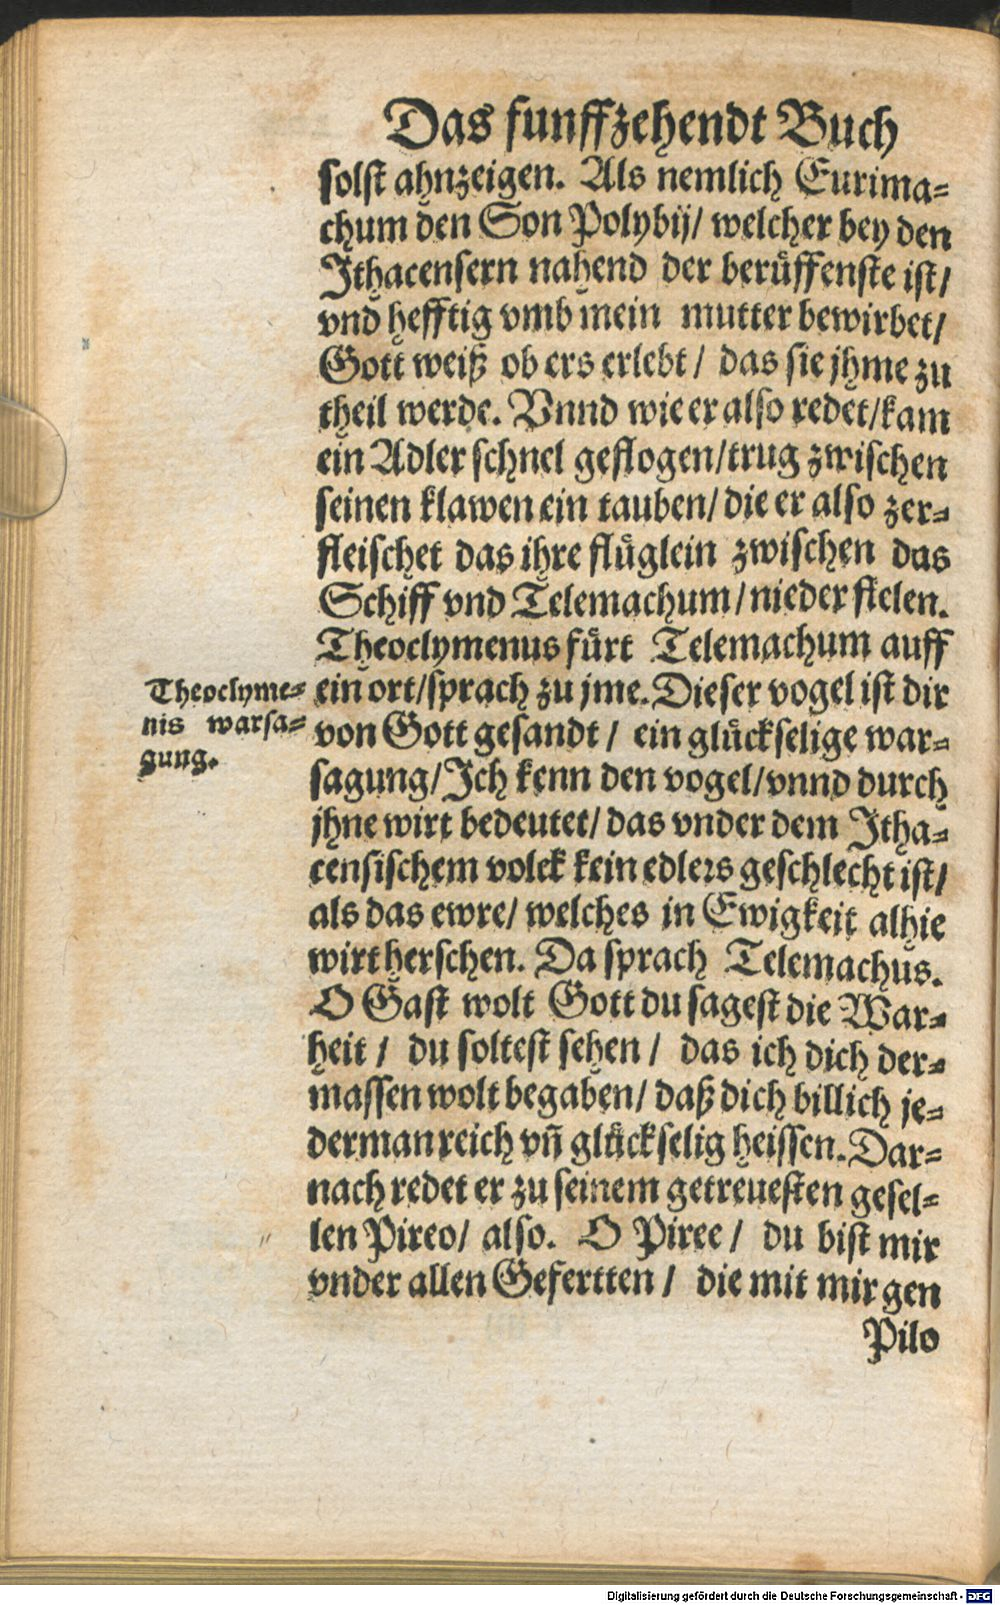 Das funffzehendt Buch
solst ahnzeigen. Als nemlich Eurima-
chum den Son Polybij/ welcher bey den
Ithacensern nahend der berüffenste ist/
vnd hefftig vmb mein mutter bewirbet/
Gott weiß ob ers erlebt/ das sie jhme zu
theil werde. Vnnd wie er also redet/kam
ein Adler schnel geflogen/trug zwischen
seinen klawen ein tauben/die er also zer-
fleischet das ihre flüglein zwischen das
Schiff vnd Telemachum/nieder fielen.
Theoclymenus fürt Telemachum auff
ein ort/sprach zu jme. Dieser vogel ist dir
von Gott gesandt/ ein glückselige war-
sagung/Ich kenn den vogel/vnnd durch
jhne wirt bedeutet/das vnder dem Itha-
censischem volck kein edlers geschlecht ist/
als das ewre/ welches in Ewigkeit alhie
wirt herschen. Da sprach Telemachus.
O Gast wolt Gott du sagest die War-
heit/ du soltest sehen/ das ich dich der-
massen wolt begaben/ daß dich billich je-
derman reich vñ glückselig heissen. Dar-
nach redet er zu seinem getreuesten gesel-
len Pireo/ also. O Piree/ du bist mir
vnder allen Gefertten/ die mit mir gen
Pilo
Theoclyme-
nis warsa-
gung.
Digitalisierung gefördert durch die Deutsche Forschungsgemeinschaft - DFG